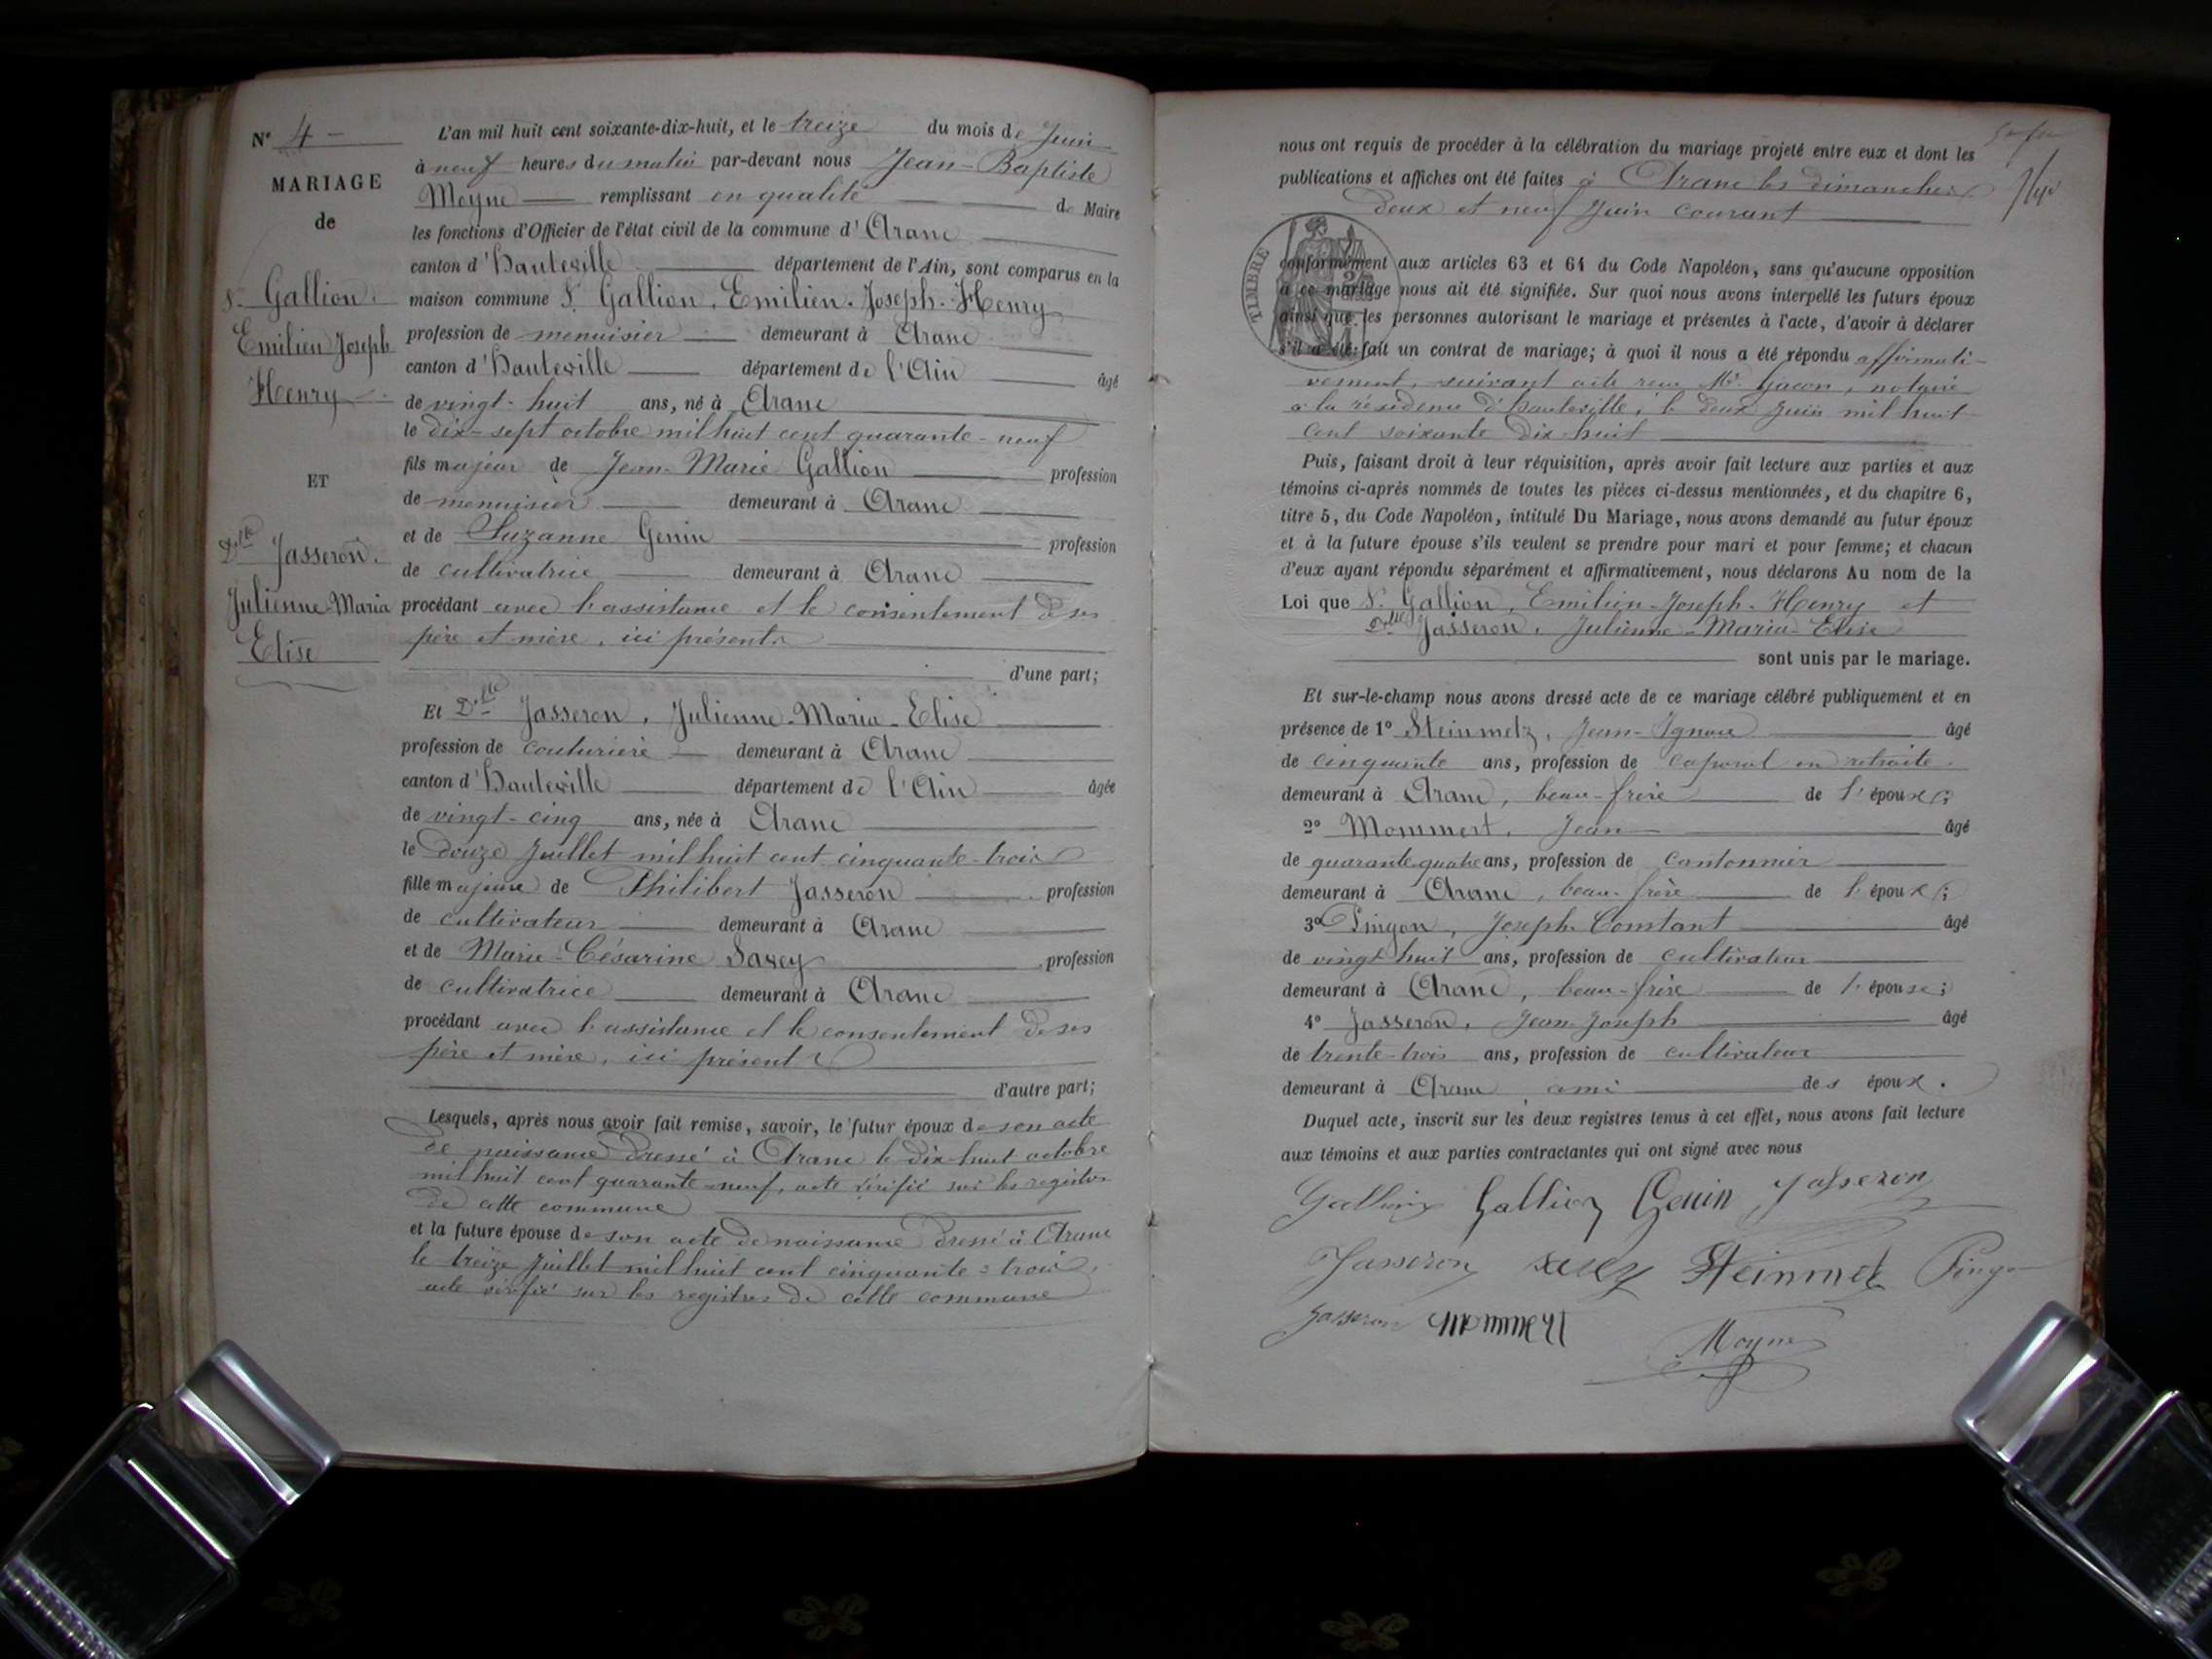 N° 4 -
MARIAGE
de
S. Gallion.
Emilien Joseph
Henry
ET
Delle Jasseron.
Julienne-Maria
Elise
L'an mil huit cent soixante-dix-huit, et le treize du mois de Juin
à neuf heures du matin par-devant nous Jean-Baptiste
Moyne remplissant en qualité de Maire
les fonctions d'Officier de l'état civil de la commune d'Aranc
canton d'Hauteville département de l'Ain, sont comparus en la
maison commune S. Gallion, Emilien-Joseph-Henry
profession de menuisier demeurant à Aranc
canton d'Hauteville département de l'Ain âgé
de vingt-huit ans, né à Aranc
le dix-sept octobre mil huit cent quarante-neuf
fils majeur de Jean-Marie Gallion profession
de menuisier demeurant à Aranc
et de Suzanne Genin profession
de cultivatrice demeurant à Aranc
procédant avec l'assistance et le consentement de ses
père et mère, ici présents
d'une part;
Et Delle Jasseron, Julienne-Maria-Elise
profession de couturière demeurant à Aranc
canton d'Hauteville département de l'Ain âgée
de vingt-cinq ans, née à Aranc
le douze Juillet mil huit cent cinquante-trois
fille majeure de Philibert Jasseron profession
de cultivateur demeurant à Aranc
et de Marie-Césarine Savey profession
de cultivatrice demeurant à Aranc
procédant avec l'assistance et le consentement de ses
père et mère, ici présents
d'autre part;
Lesquels, après nous avoir fait remise, savoir, le futur époux de son acte
de naissance dressé à Aranc le dix-huit octobre
mil huit cent quarante-neuf, acte vérifié sur les registres
de cette commune
et la future épouse de son acte de naissance dressé à Aranc
le treize Juillet mil huit cent cinquante-trois,
acte vérifié sur les registres de cette commune
nous ont requis de procéder à la célébration du mariage projeté entre eux et dont les
publications et affiches ont été faites à Aranc les dimanches
deux et neuf Juin courant
TIMBRE
conformément aux articles 63 et 64 du Code Napoléon, sans qu'aucune opposition
à ce mariage nous ait été signifiée. Sur quoi nous avons interpellé les futurs époux
ainsi que les personnes autorisant le mariage et présentes à l'acte, d'avoir à déclarer
s'il a été fait un contrat de mariage; à quoi il nous a été répondu affirmati-
vement, suivant acte reçu Me Gacon, notaire
à la résidence d'Hauteville, le deux Juin mil huit
cent soixante dix-huit
Puis, faisant droit à leur réquisition, après avoir fait lecture aux parties et aux
témoins ci-après nommés de toutes les pièces ci-dessus mentionnées, et du chapitre 6,
titre 5, du Code Napoléon, intitulé Du Mariage, nous avons demandé au futur époux
et à la future épouse s'ils veulent se prendre pour mari et pour femme; et chacun
d'eux ayant répondu séparément et affirmativement, nous déclarons Au nom de la
Loi que S. Gallion, Emilien-Joseph-Henry et
Delle Jasseron, Julienne-Maria-Elise
sont unis par le mariage.
Et sur-le-champ nous avons dressé acte de ce mariage célébré publiquement et en
présence de 1° Steinmetz, Jean-Ignace âgé
de cinquante ans, profession de caporal en retraite
demeurant à Aranc, beau-frère de l'époux;
2° Mommert, Jean âgé
de quarante-quatre ans, profession de cantonnier
demeurant à Aranc, beau-frère de l'époux;
3° Pingon, Joseph-Constant âgé
de vingt-huit ans, profession de cultivateur
demeurant à Aranc, beau-frère de l'épouse;
4° Jasseron, Jean-Joseph âgé
de trente-trois ans, profession de cultivateur
demeurant à Aranc ami des époux.
Duquel acte, inscrit sur les deux registres tenus à cet effet, nous avons fait lecture
aux témoins et aux parties contractantes qui ont signé avec nous
Gallion Gallion Genin Jasseron
Jasseron Steinmetz Pingon
Jasseron Mommert
Moyne